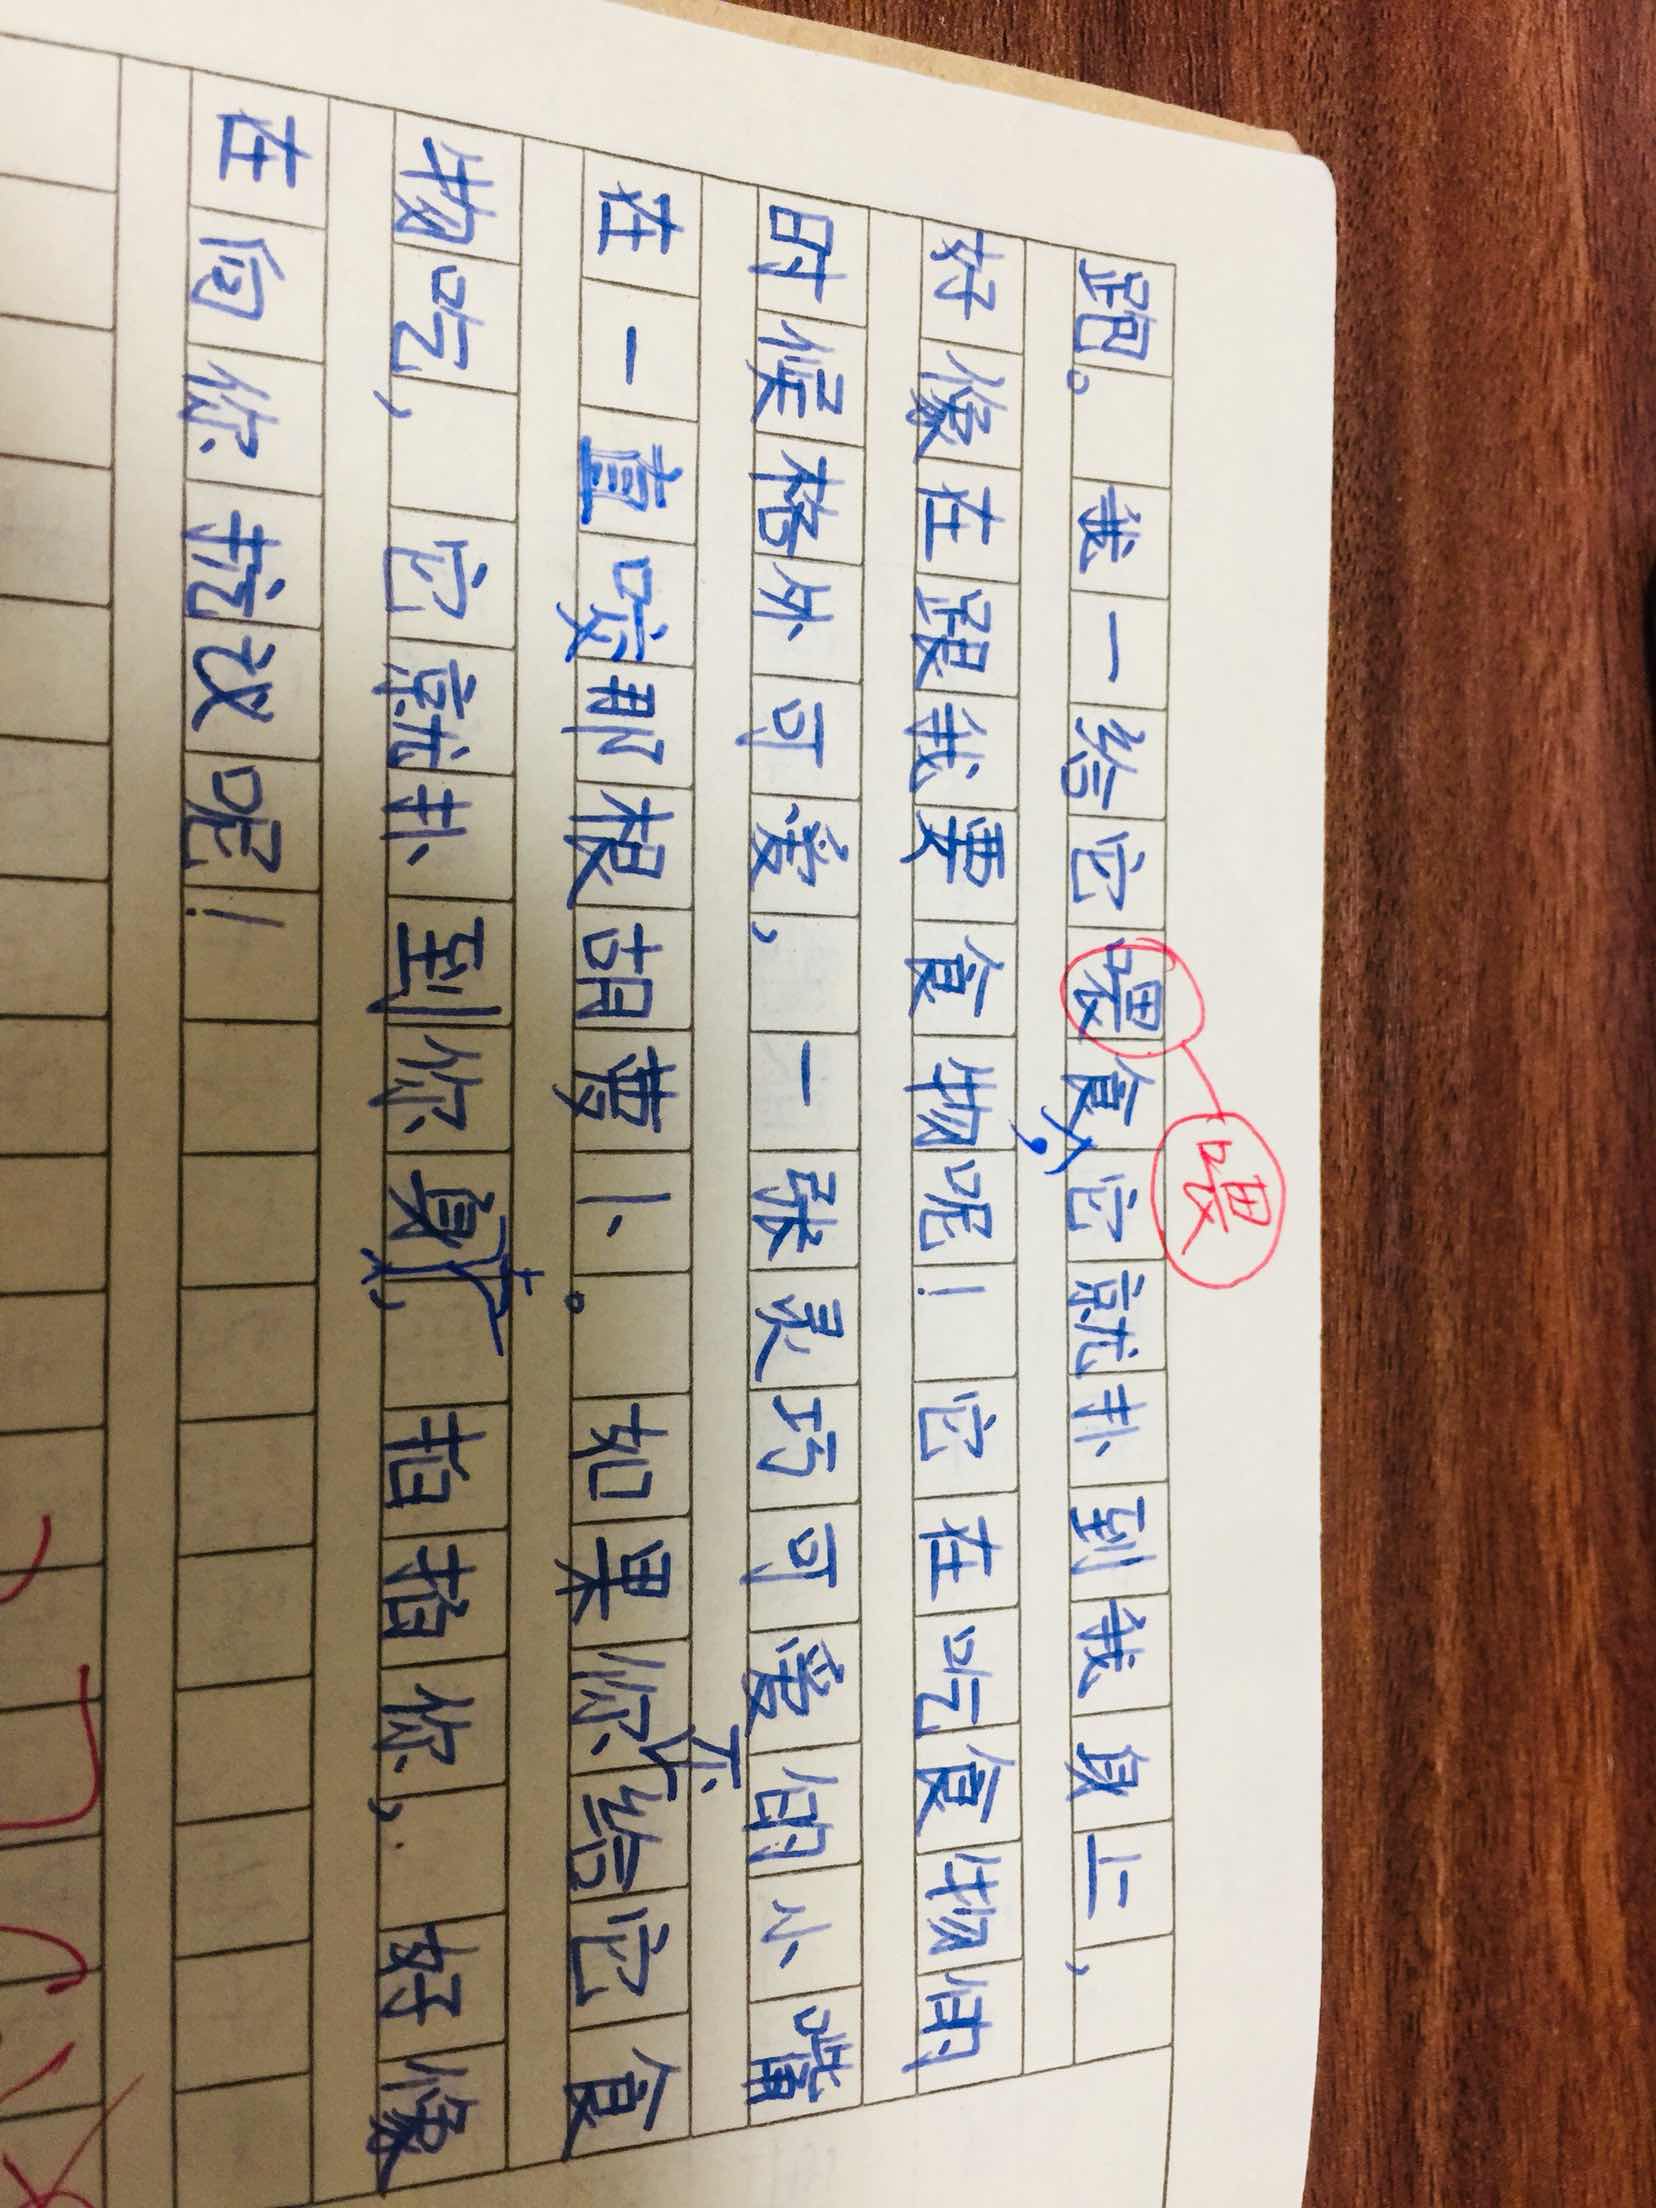 跑。我一给它喂食，它就扑到我身上，
喂
好像在跟我要食物呢！它在吃食物的
时候格外可爱，一张灵巧可爱的小嘴
在一直咬那根胡萝卜。如果你不给它食
物吃，它就扑到你身上，拍拍你，好像
在向你抗议呢！